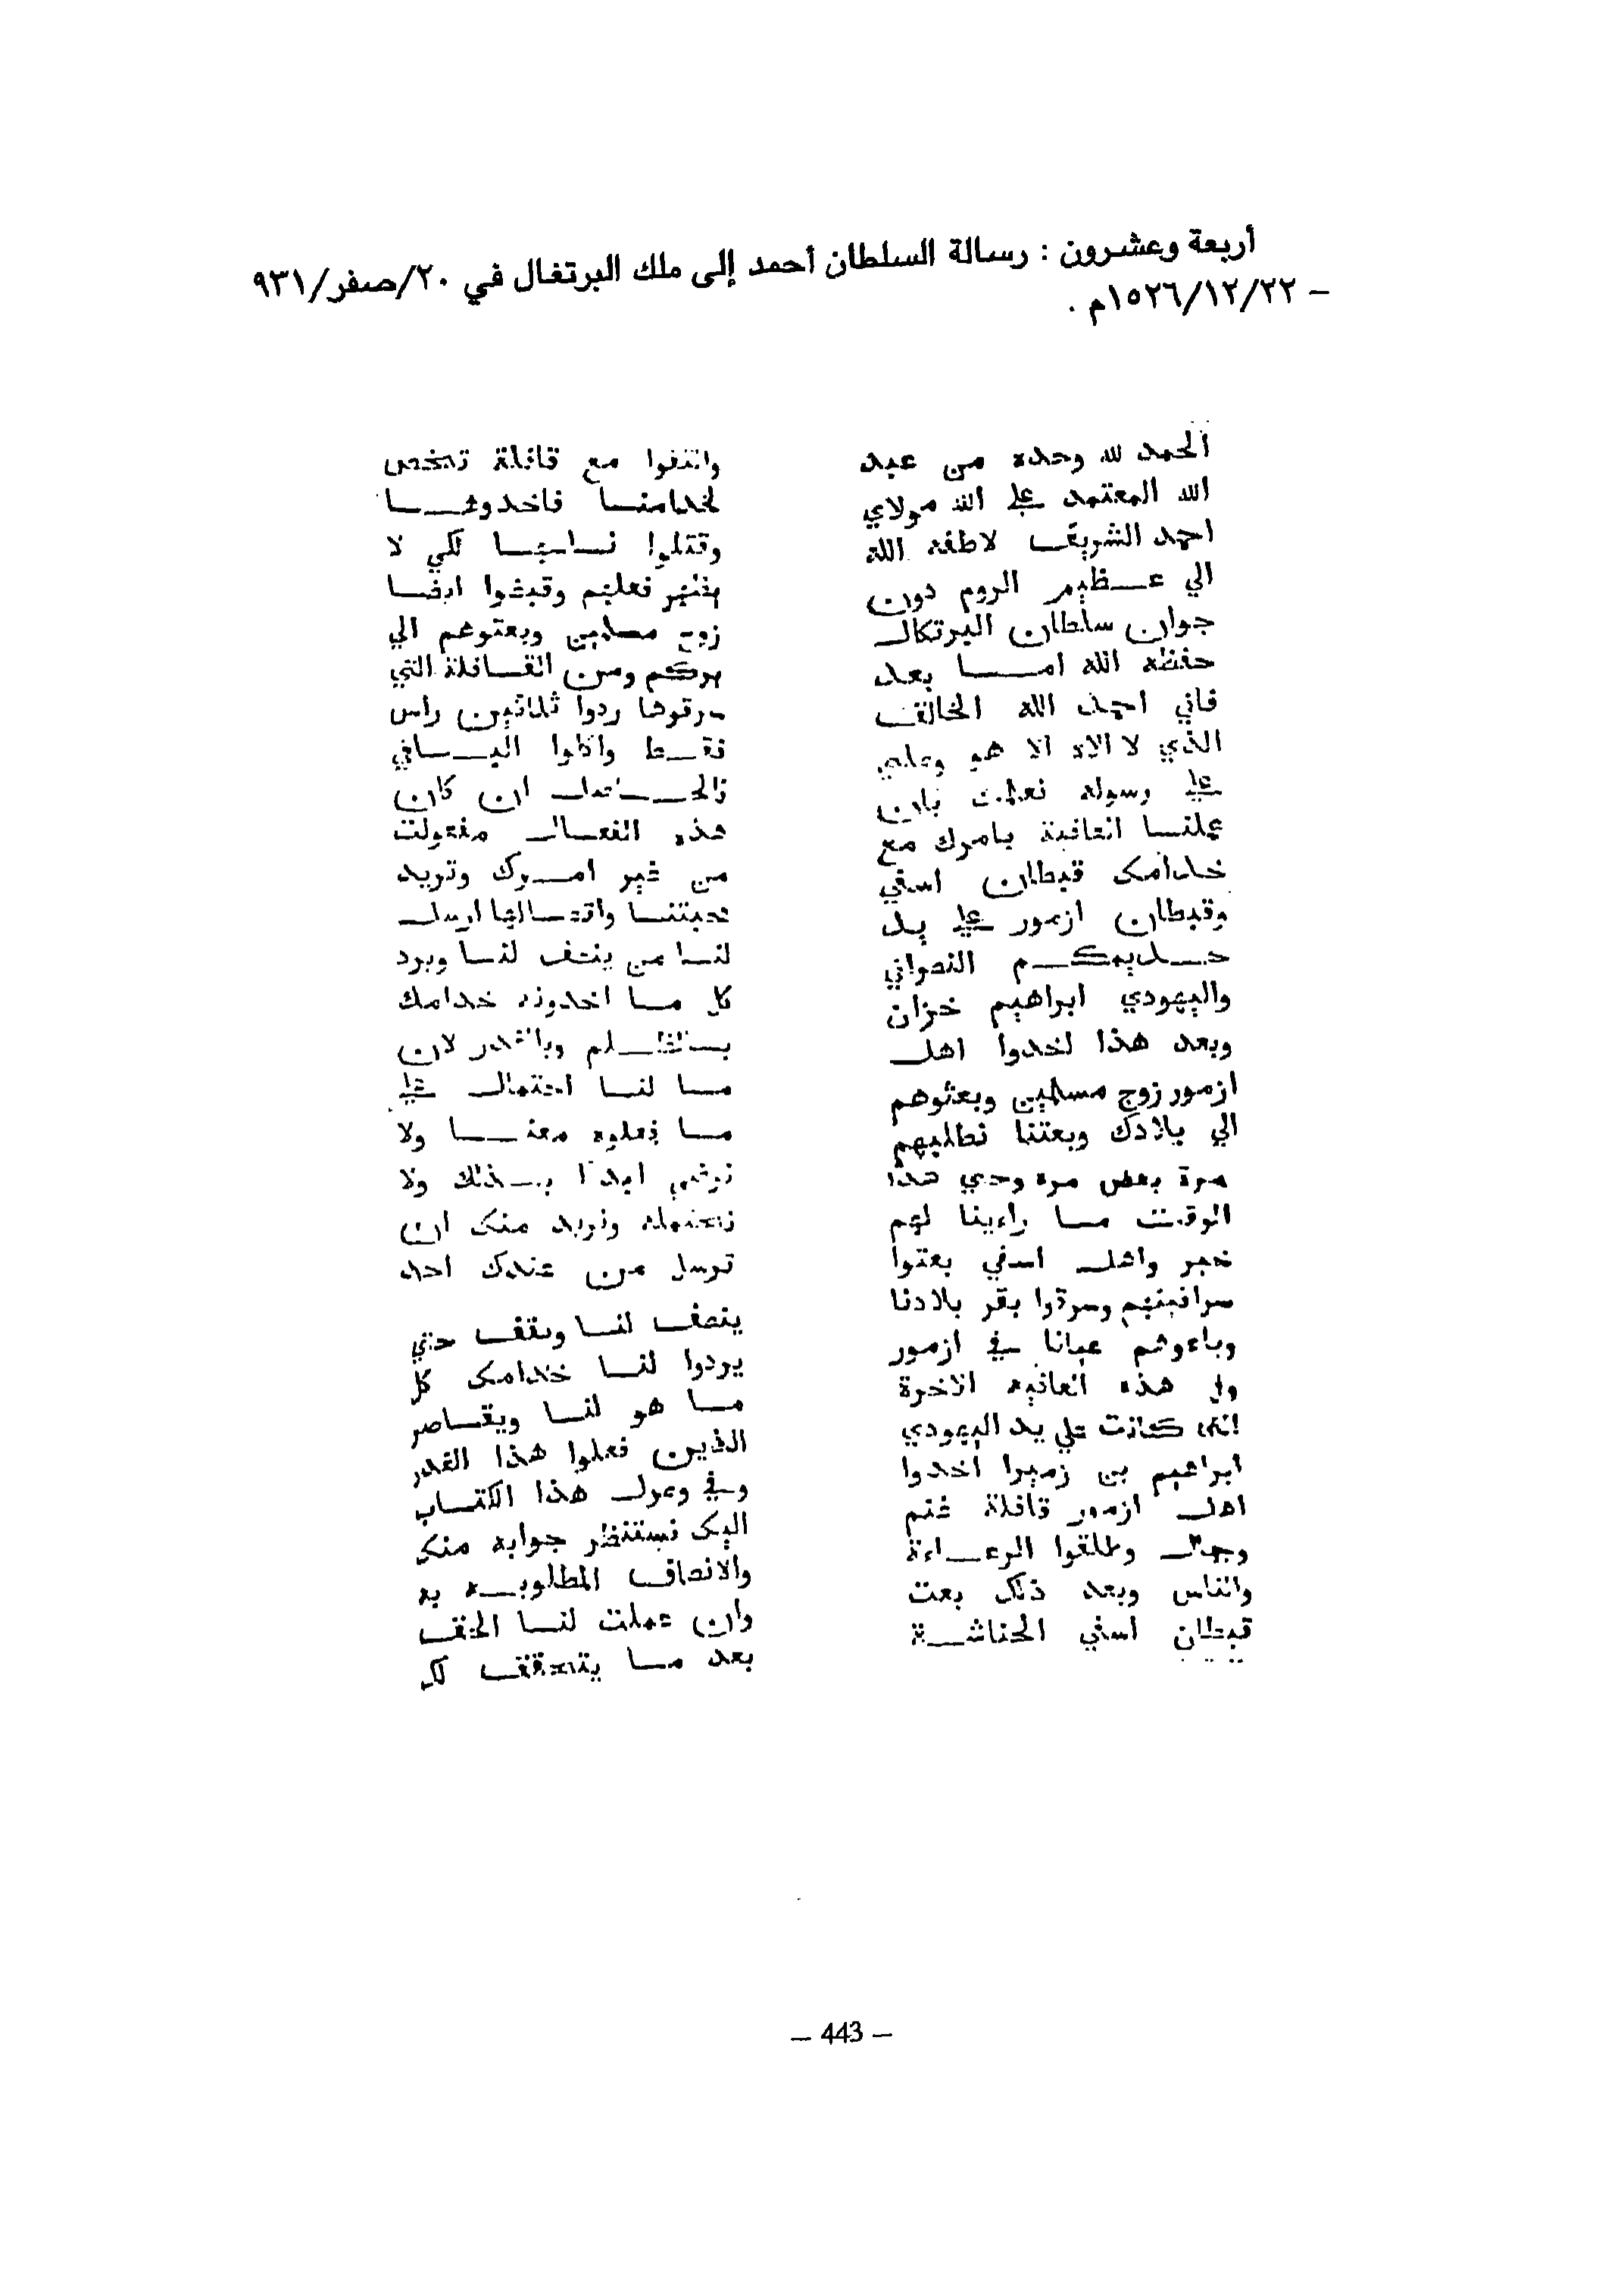 أربعة وعشرون : رسالة السلطان أحمد إلى ملك البرتغال في ٢٠/صفر/٩٣١
– ١٥٢٦/١٢/٢٢م .
الحمد لله وحده من عبد
الله المعتمد علي الله مولاي
احمد الشريف لاطفه الله
الي عظيم الروم دون
جوان سلطان البرتكال
حفظه الله اما بعد
فاني احمد الله الخالق
الذي لا الاه الا هو
علي رسوله بان
عملنا العافية بامرك مع
خدامك قبطان اسفي
وقبطان ازمور علي يد
خديمكم النصراني
واليهودي ابراهيم خزان
وبعد هذا اخدوا اهل
ازمور زوج مسلمين وبعثوهم
الي بلادك وبعتنا نطلبهم
مرة بعض مره وحتي هذا
الوقت ما راءينا لهم
خبر واهل اسفي بعتوا
وسرقوا بقر بلادنا
وباعوهم عيانا في ازمور
هذه العافية الاخرة
التي كانت علي يد اليهودي
ابراهيم بن زميرا اخدوا
اهل ازمور قافلة غنم
وجمال وطلقوا الرعاءة
والناس وبعد ذلك بعت
قبطان اسفي الحناشة
واتفقوا مع قافلة تخص
لخدامنا فاخدوها
وقتلوا لكي لا
يظهر فعلهم وقبضوا ايضا
زوج مسلمين وبعتوهم الي
بركم ومن القافلة التي
سرقوها ردوا ثلاثين راس
فقط واكلوا الباقي
فالحاصل ان كان
هذه الفعال مفعولت
من غير امرك وتريد
محبتنا ارسل
لنا من ينصف لنا ويرد
كل ما اخدونه خدامك
بالظلم وبالغدر لان
ما لنا احتمال علي
ما فعلوه معنا ولا
نرضي ابدا بذلك ولا
نحتمله ونريد منك ان
ترسل من عندك احد
ينصف لنا ويقف حتي
يردوا لنا خدامك كل
ما هو لنا ويقاصر
الذين فعلوا هذا الغدر
وفي وصول هذا الكتاب
اليك نستنظر جوابه منك
والانصاف المطلوب به
وان عملت لنا الحق
بعد ما يتحقق لك
– 443 –